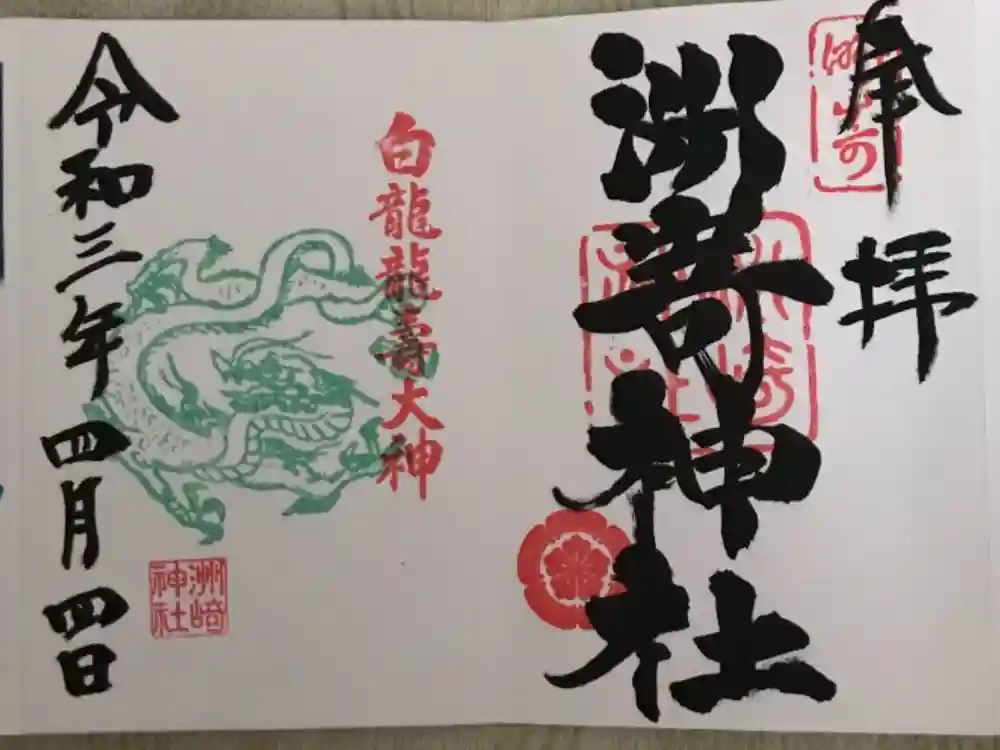 奉拝
洲嵜神社
白龍龍壽大神
令和三年四月四日
洲崎
神社